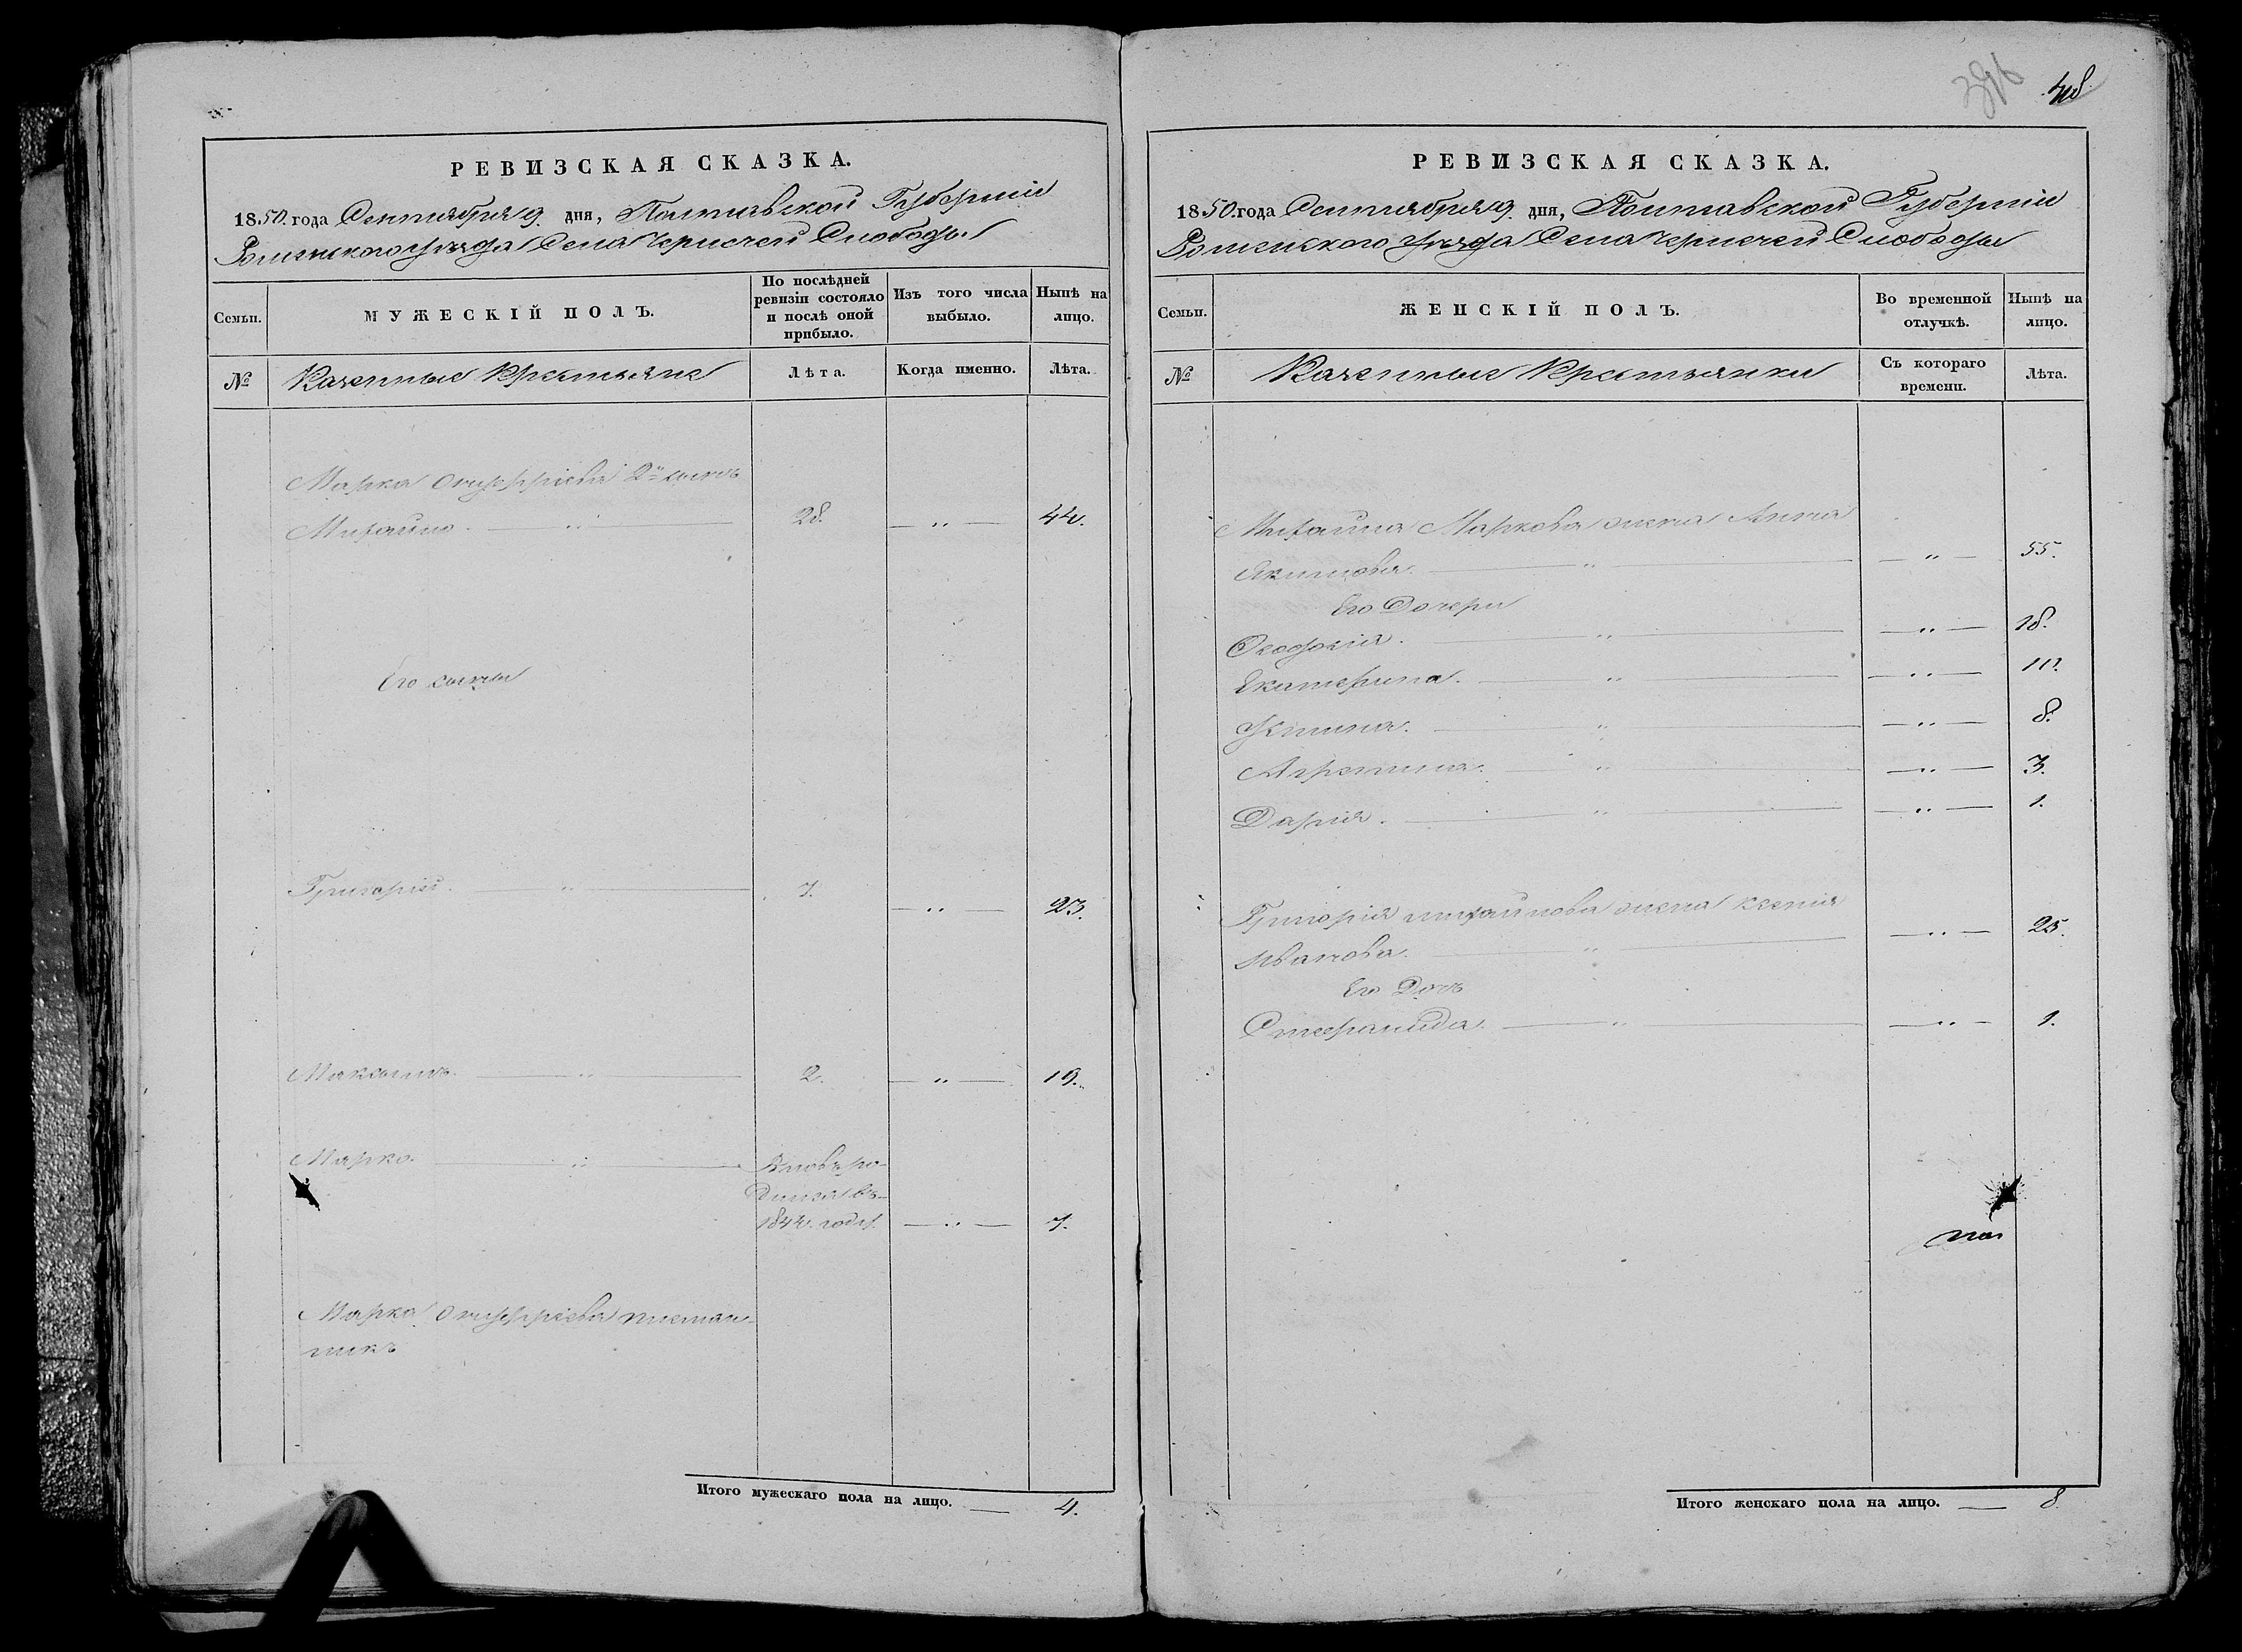 48
РЕВИЗСКАЯ СКАЗКА.
1850. года Сентября 9. дня, Полтавской Губерніи
Роменского уѣзда Села Чернечей Слободы
Семьи.
МУЖЕСКІЙ ПОЛЪ.
По послѣдней ревизіи состояло и послѣ оной прибыло.
Изъ того числа выбыло.
Нынѣ на лицо.
№
Казенные Крестьяне
Лѣта.
Когда именно.
Лѣта.
Марка Онуфріева 2й сынъ
Михайло. — „ — 28. — „ — 44.
Его сыны
Григорій. — „ — 7. — „ — 23.
Максимъ. — „ — 2. — „ — 19.
Марко. — „ — Вновь ро-
дился въ
184 году. — „ — 7.
Марка Онуфріева племян-
никъ
Итого мужескаго пола на лицо. — 4.
РЕВИЗСКАЯ СКАЗКА.
1850. года Сентября 9. дня, Полтавской Губерніи
Роменского уѣзда Села Чернечей Слободы
Семьи.
ЖЕНСКІЙ ПОЛЪ.
Во временной отлучкѣ.
Нынѣ на лицо.
№
Казенные Крестьянки
Съ котораго времени.
Лѣта.
Михайла Маркова жена Анна
Якимова. — „ — — „ — 55.
Его Дочери
Феодосія. — „ — — „ — 18.
Екатерина. — „ — — „ —
Устина. — „ — — „ — 8.
Агрепина. — „ — — „ — 3.
Дарія. — „ — — „ — 1.
Григорія Михайлова жена Ксенія
Иванова. — „ — — „ — 25.
Его Дочь
Степанида. — „ — — „ — 1.
Итого женскаго пола на лицо. — 8.